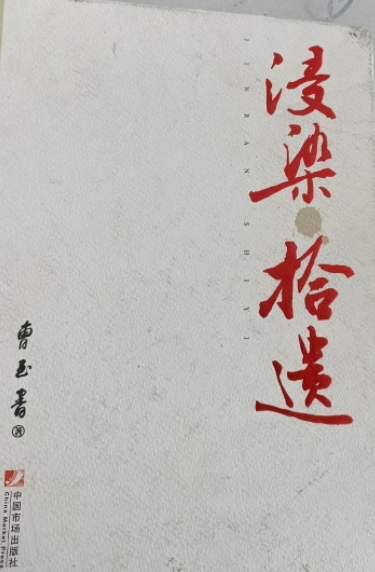 浸染·拾遗
JINRAN SHIYI
曹玉书 著
中国市场出版社
China Market Press